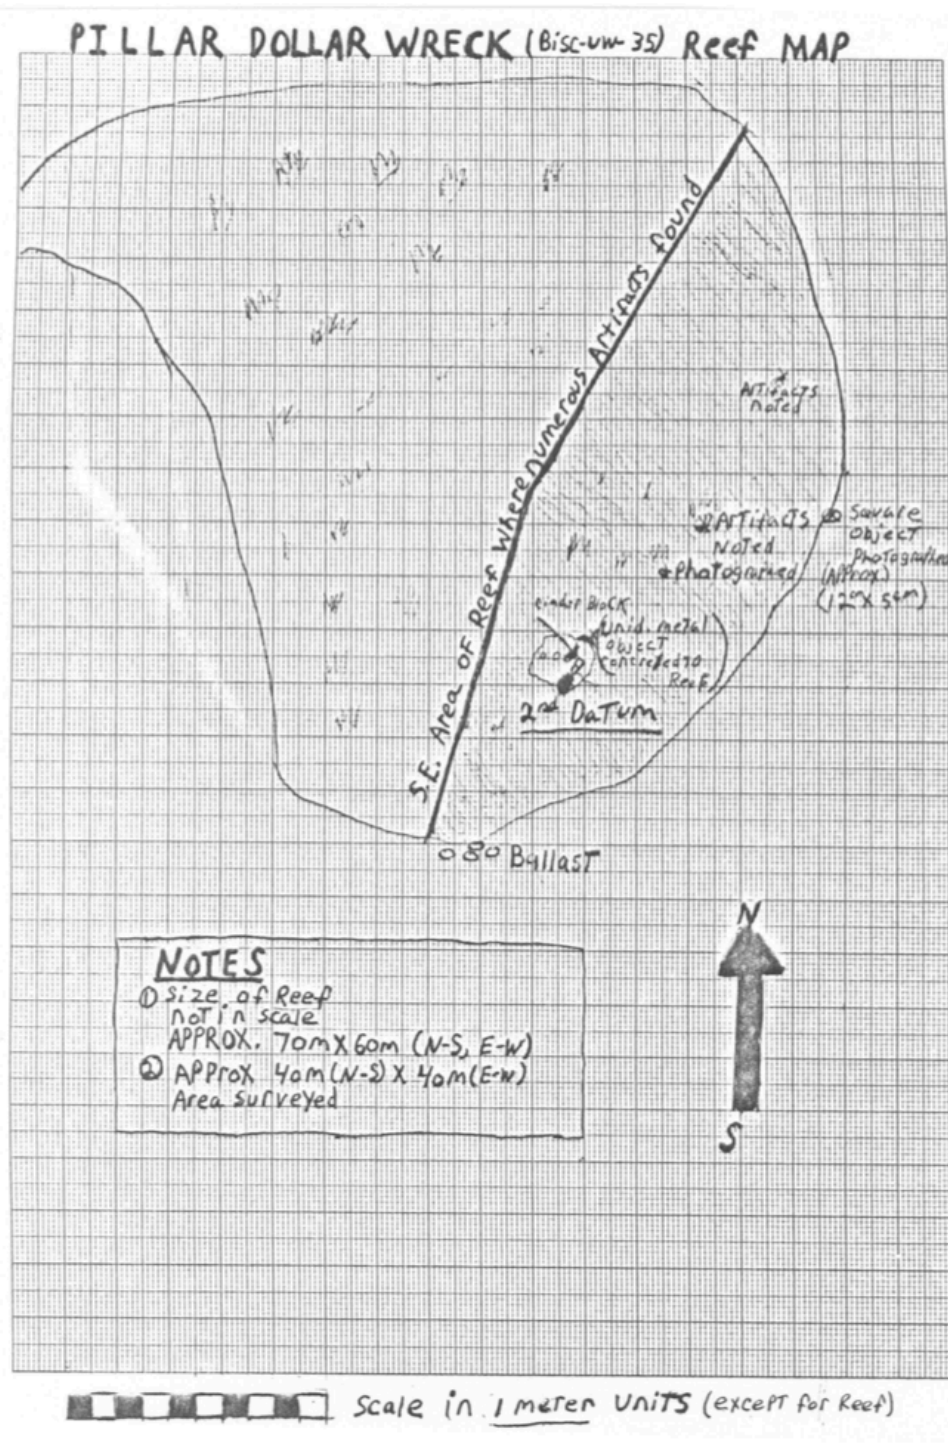 PILLAR DOLLAR WRECK (Bisc-uw-35) Reef MAP
S.E. Area of Reef Where numerous Artifacts found
Artifacts
noted
Artifacts
Noted
Photographed
Square
Object
Photographed
(Approx)
(12cm X 5cm)
Cinder Block
Unid. metal
object
concreted to
Reef
2nd Datum
Ballast
N
S
NOTES
① Size of Reef
not in scale
APPROX. 70m X 60m (N-S, E-W)
② APProx 40m (N-S) X 40m (E-W)
Area Surveyed
Scale in 1 meter units (except for Reef)